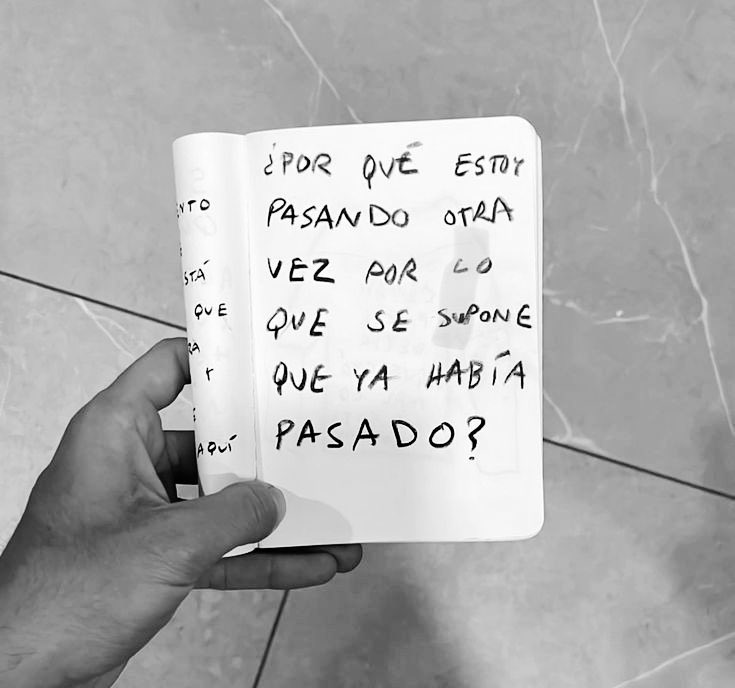 ¿POR QUÉ ESTOY
PASANDO OTRA
VEZ POR LO
QUE SE SUPONE
QUE YA HABÍA
PASADO?
QUE
Y
AQUÍ